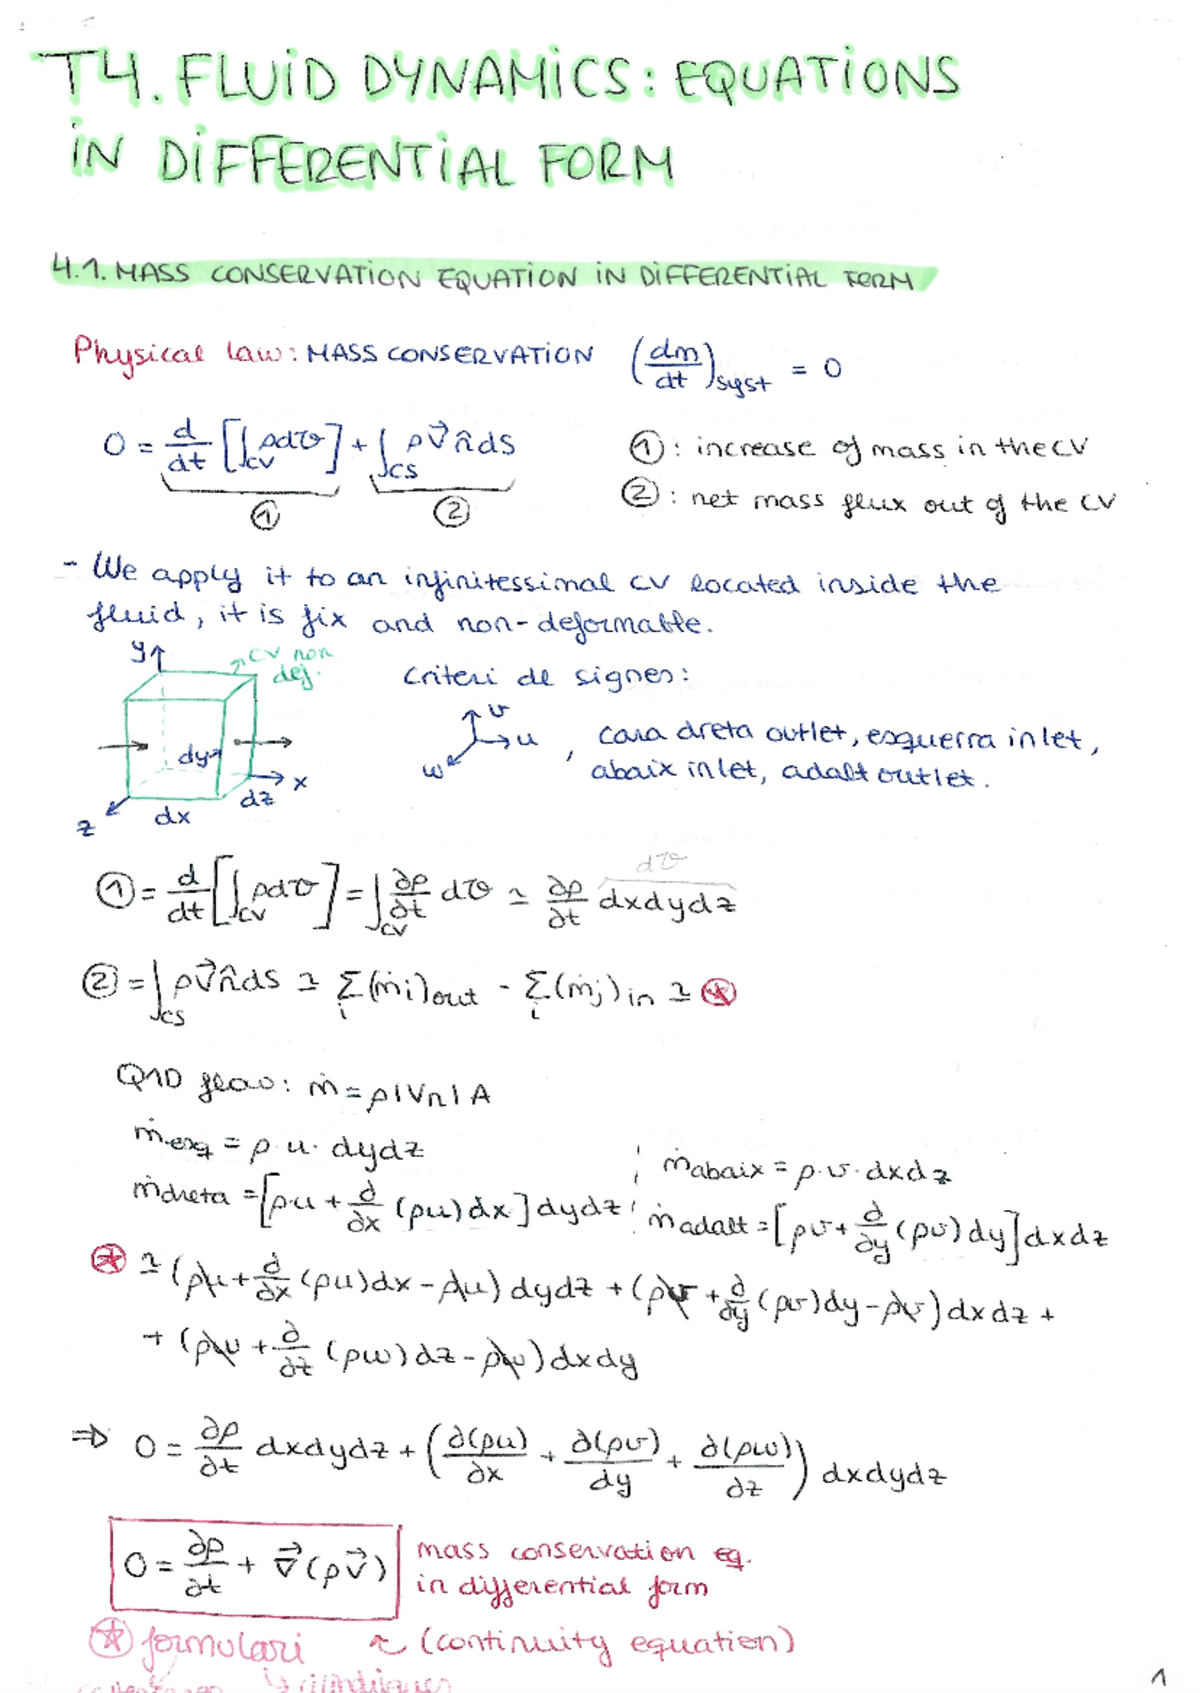 T4. FLUID DYNAMICS: EQUATIONS
IN DIFFERENTIAL FORM
4.1. MASS CONSERVATION EQUATION IN DIFFERENTIAL FORM
Physical law: MASS CONSERVATION (dm/dt)syst = 0
0 = d/dt [∫cv ρdυ] + ∫cs ρv⃗n̂ds
① ②
①: increase of mass in the CV
②: net mass flux out of the CV
- We apply it to an infinitessimal CV located inside the
fluid, it is fix and non-deformable.
y CV non
def.
dy
x
dz
dx
z
Criteri de signes:
v
u
w
, cara dreta outlet, esquerra inlet,
abaix inlet, adalt outlet.
dυ
① = d/dt [∫cv ρdυ] = ∫cv ∂ρ/∂t dυ ≃ ∂ρ/∂t dxdydz
② = ∫cs ρv⃗n̂ds ≃ Σi (ṁi)out - Σi (ṁj)in ≃ ⊛
Q1D flow: ṁ = ρ|Vn|A
ṁesq = ρ·u· dydz ; ṁabaix = ρ·v·dxdz
ṁdreta = [ρu + ∂/∂x (ρu)dx] dydz ; ṁadalt = [ρv + ∂/∂y (ρv)dy] dxdz
⊛ ≃ (ρu + ∂/∂x (ρu)dx - ρu) dydz + (ρv + ∂/∂y (ρv)dy - ρv) dxdz +
+ (ρw + ∂/∂z (ρw)dz - ρw) dxdy
⇒ 0 = ∂ρ/∂t dxdydz + (∂(ρu)/∂x + ∂(ρv)/dy + ∂(ρw)/∂z) dxdydz
0 = ∂ρ/∂t + ∇⃗(ρv⃗) mass conservation eq.
in differential form
⊛ formulari (continuity equation)
1